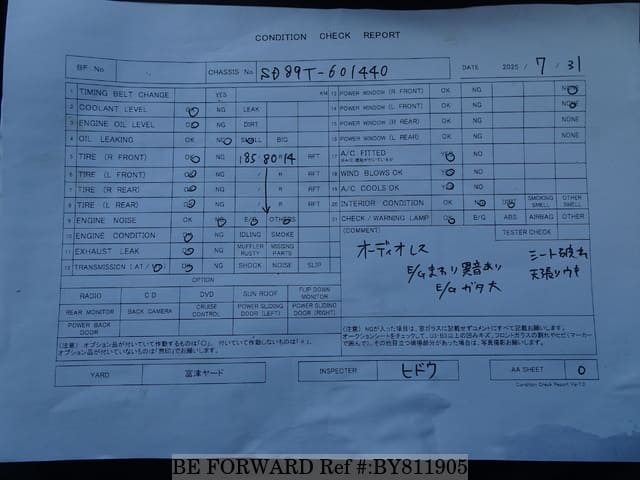 CONDITION CHECK REPORT
BF No
CHASSIS No SD89T-601440
DATE 2025 / 7 / 31
1 TIMING BELT CHANGE YES KM
2 COOLANT LEVEL OK NG LEAK
3 ENGINE OIL LEVEL OK NG DIRT
4 OIL LEAKING OK NG SMALL BIG
5 TIRE (R FRONT) OK NG 185 80 R 14 RFT
6 TIRE (L FRONT) OK NG / R RFT
7 TIRE (R REAR) OK NG / R RFT
8 TIRE (L REAR) OK NG R RFT
9 ENGINE NOISE OK NG E/G OTHERS
10 ENGINE CONDITION OK NG IDLING SMOKE
11 EXHAUST LEAK OK NG MUFFLER RUSTY MISSING PARTS
12 TRANSMISSION (AT/ OK NG SHOCK NOISE SLIP
OPTION
RADIO CD DVD SUN ROOF FLIP DOWN MONITOR
REAR MONITOR BACK CAMERA CRUISE CONTROL POWER SLIDING DOOR (LEFT) POWER SLIDING DOOR (RIGHT)
POWER BACK DOOR
(注意) オプション品が付いていて作動するものは「○」、付いていて作動しないものは「×」、
オプション品が付いていないものは「無印」でお願い致します。
13 POWER WINDOW (R FRONT) OK NG NONE
14 POWER WINDOW (L FRONT) OK NG NONE
15 POWER WINDOW (R REAR) OK NG NONE
16 POWER WINDOW (L REAR) OK NG NONE
17 A/C FITTED YES NO
18 WIND BLOWS OK YES NO
19 A/C COOLS OK YES NO
20 INTERIOR CONDITION OK NG DIRT SMOKING SMELL OTHER SMELL
21 CHECK / WARNING LAMP OK E/G ABS AIRBAG OTHER
(COMMENT)
TESTER CHECK
オーディオレス
E/Gまわり異音あり
E/Gガタ大
シート破れ
天張りウキ
(注意) NGが入った項目は、窓ガラスに記載せずコメントにすべて記載お願いします。
オークションシートをチェックして、U3・B3以上の凹みキズ、フロントガラスの割れやヒビ(マーカー
で囲んで)、その他目立つ損傷部分があった場合は、写真撮影お願いします。
YARD 富津ヤード
INSPECTER ヒドウ
AA SHEET 0
Condition Check Report Ver7.0
BE FORWARD Ref #:BY811905